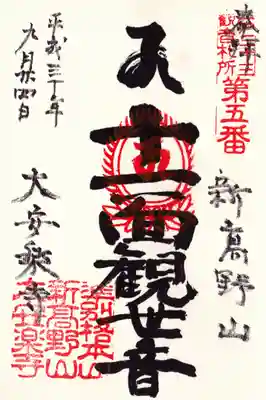 奉拝
第五番
新高野山
十一面観世音
平成三十年
九月廿四日
大安楽寺
新高野山
大安楽寺